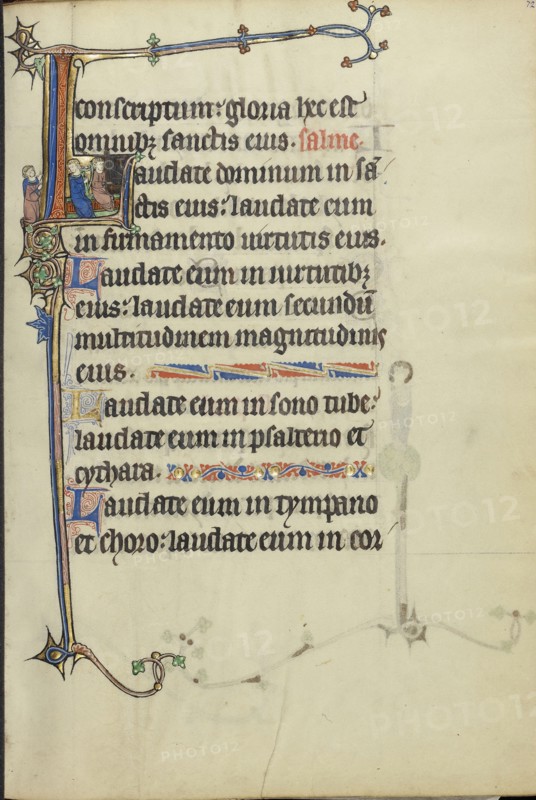 72
conscriptum: gloria hec est
omnibꝫ sanctis eius. salme.
Laudate dominum in sā
ctis eius: laudate eum
in firmamento uirtutis eius.
Laudate eum in uirtutibꝫ
eius: laudate eum secundū
multitudinem magnitudinis
eius.
Laudate eum in sono tube:
laudate eum in psalterio et
cythara.
Laudate eum in tympano
et choro: laudate eum in cor
PHOTO12